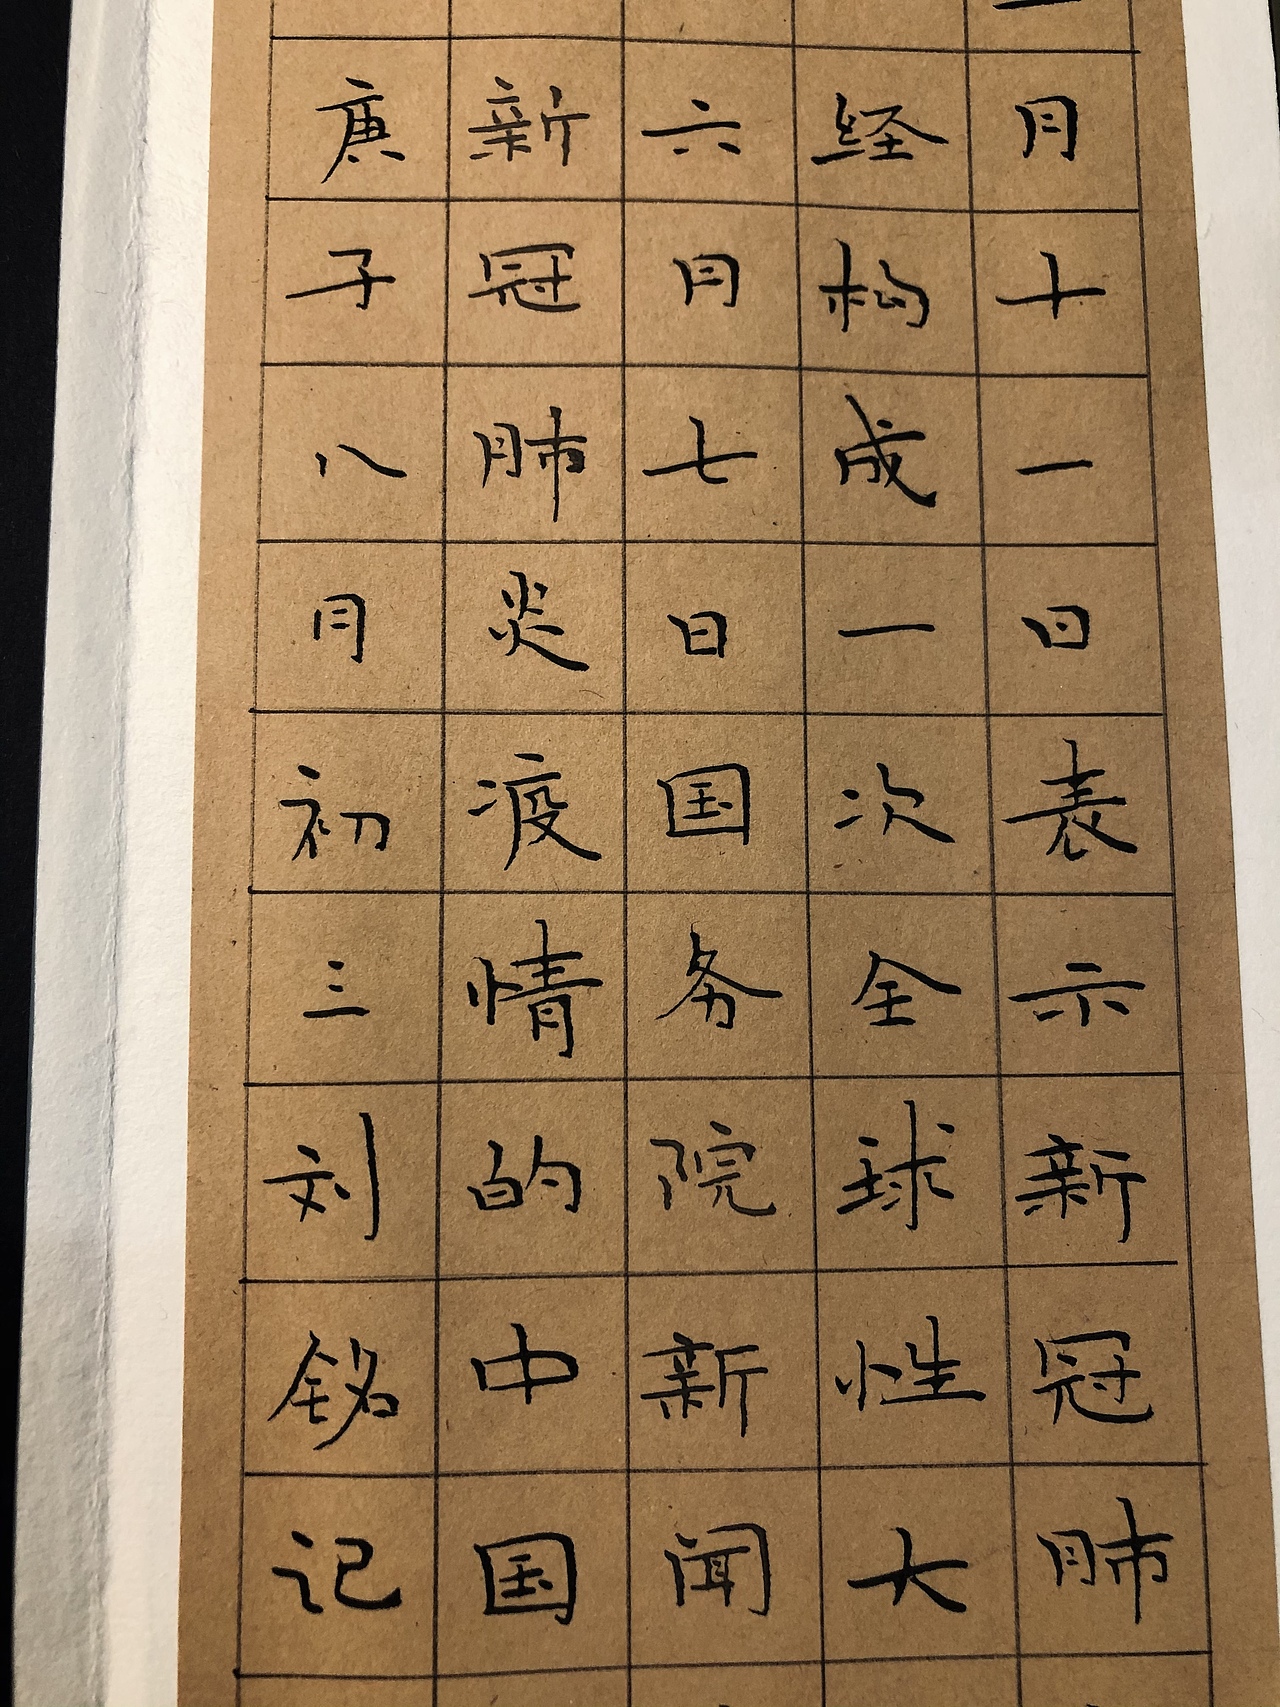 月十一日表示新冠肺
经构成一次全球性大
六月七日国务院新闻
新冠肺炎疫情的中国
庚子八月初三刘铭记